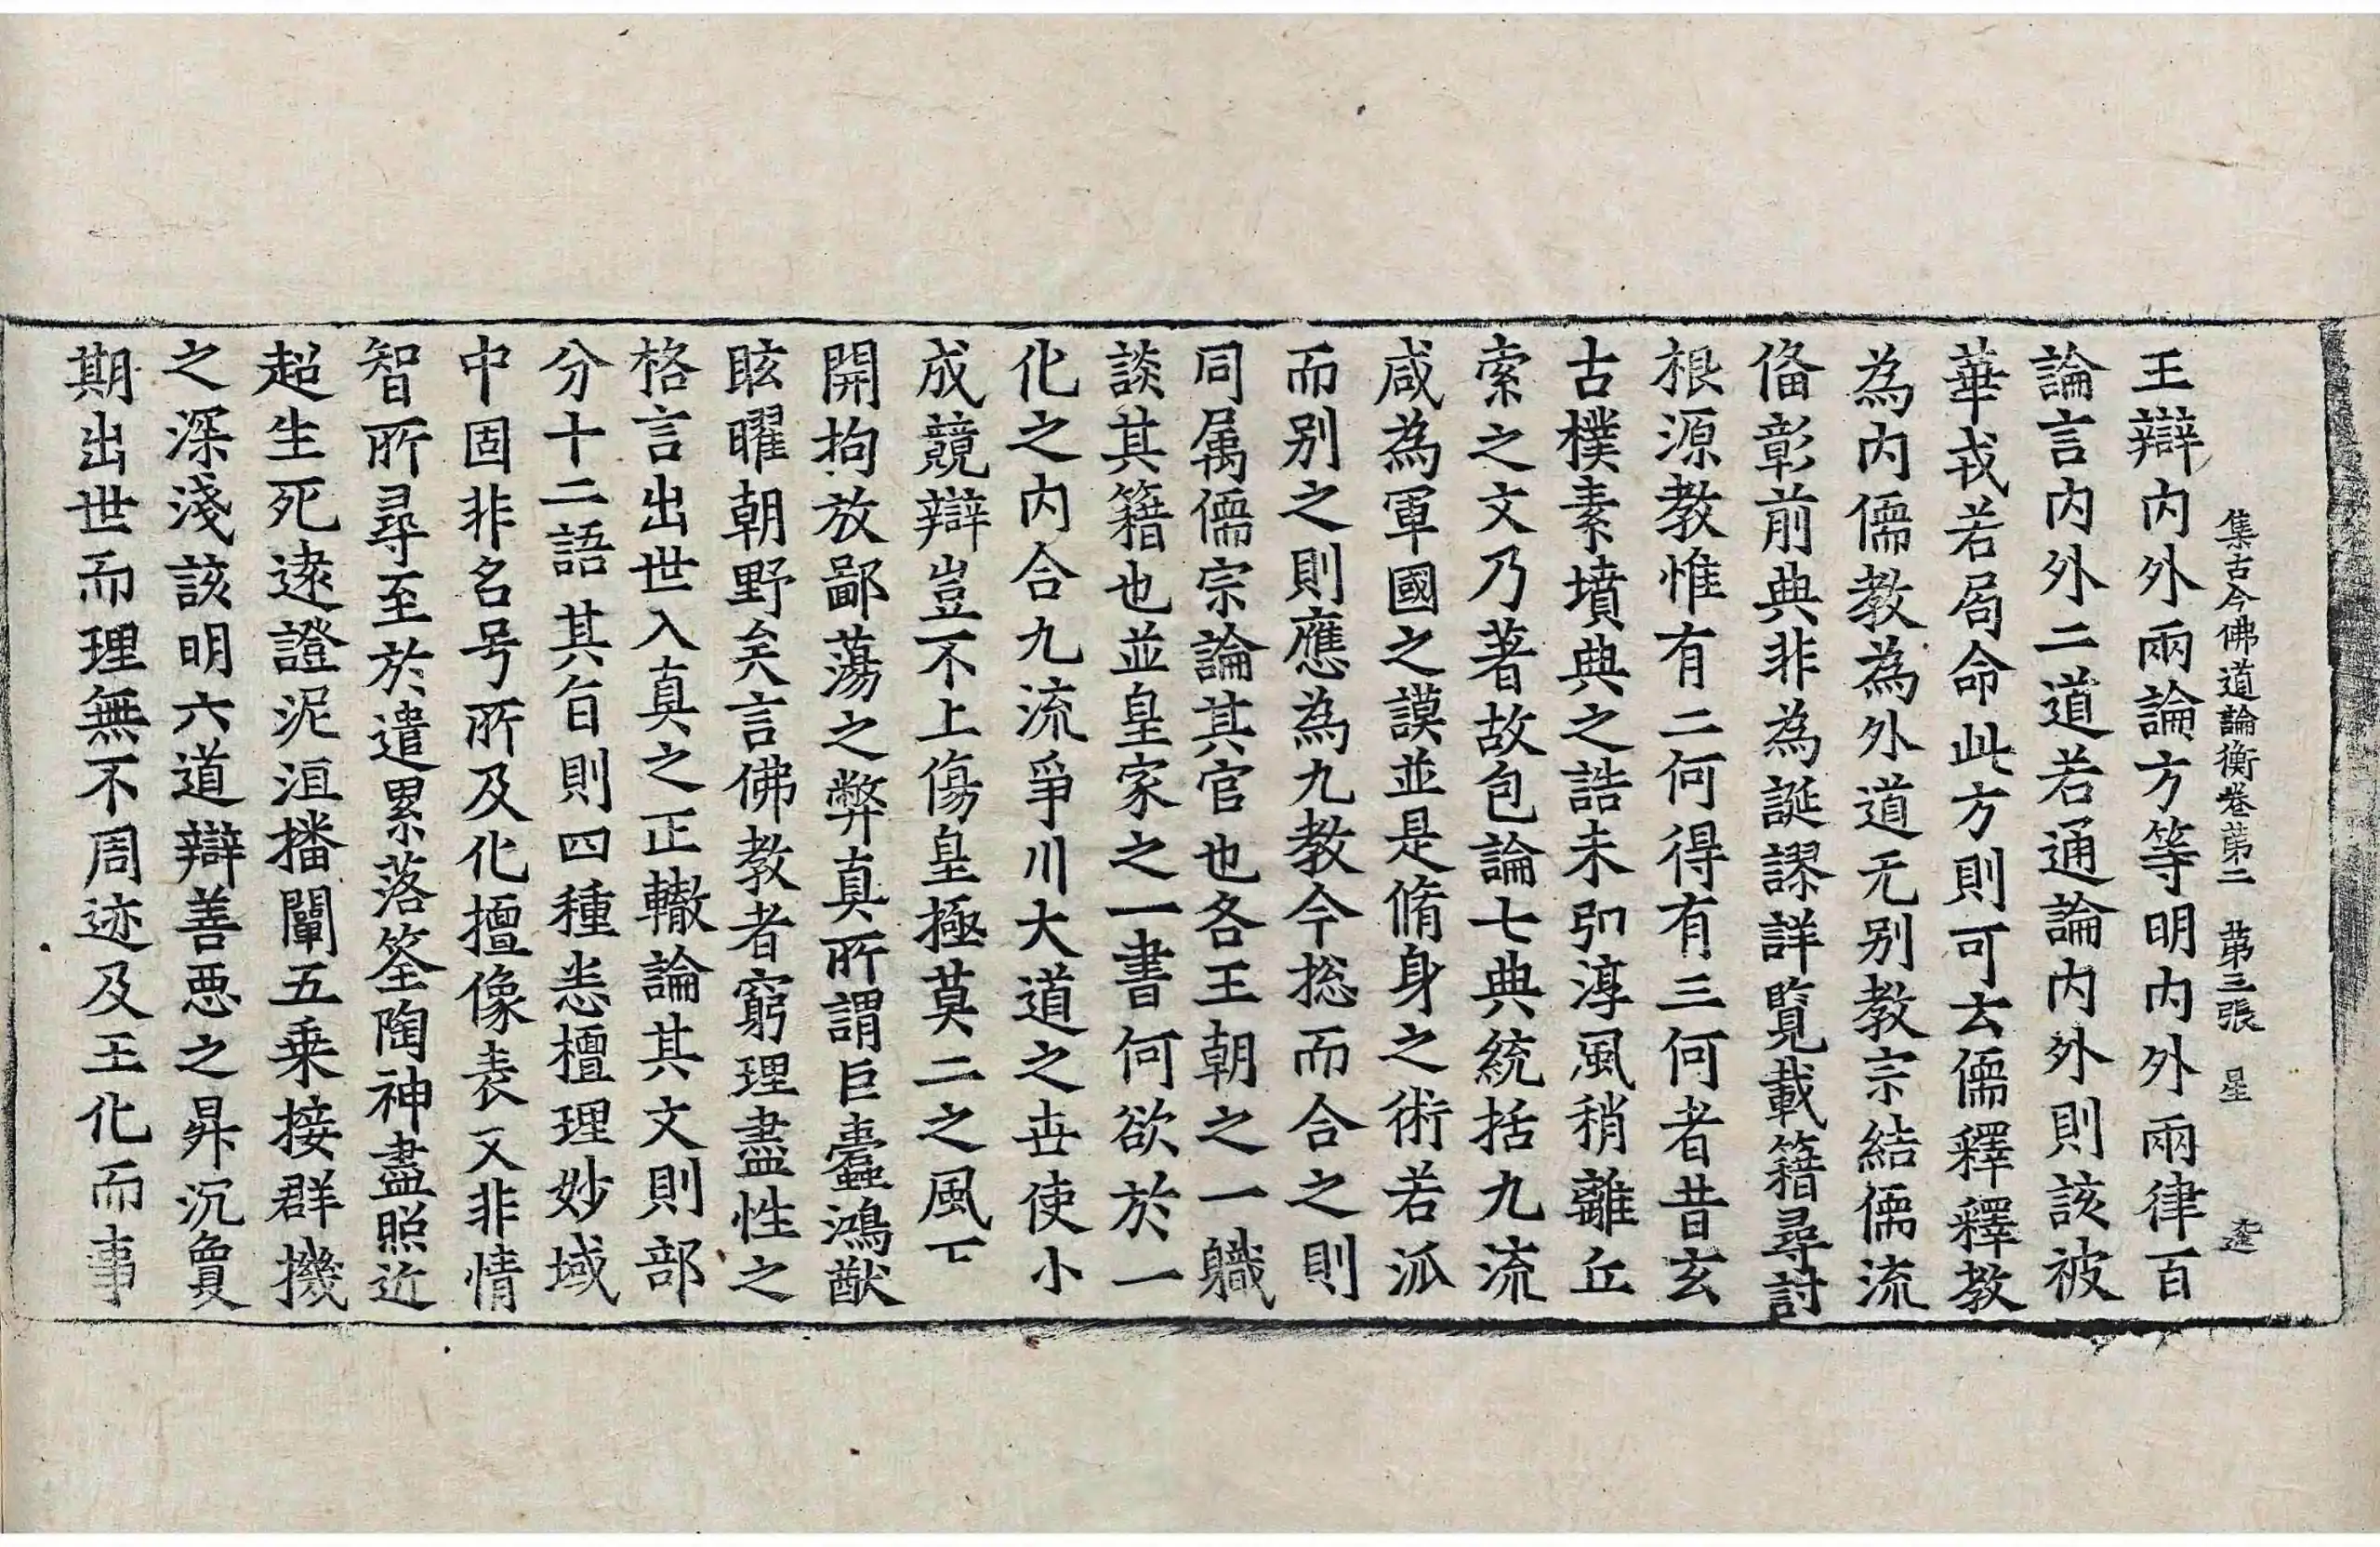 集古今佛道論衡卷第二　第三張　星
王辯內外兩論方等明內外兩律百
論言內外二道若通論內外則該被
華戎若局命此方則可云儒釋釋教
為內儒教為外道无別教宗結儒流
俻彰前典非為誕謬詳覧載籍尋討
根源教惟有二何得有三何者昔玄
古樸素墳典之誥未弘淳風稍離丘
索之文乃著故包論七典統括九流
咸為軍國之謨並是脩身之術若派
而別之則應為九教今捴而合之則
同属儒宗論其官也各王朝之一軄
談其籍也並皇家之一書何欲於一
化之內合九流爭川大道之丗使小
成競辯豈不上傷皇極莫二之風下
開拘放鄙蕩之弊真所謂巨蠹鴻猷
眩曜朝野矣言佛教者窮理盡性之
格言出世入真之正轍論其文則部
分十二語其旨則四種悉檀理妙域
中固非名号所及化擅像表又非情
智所尋至於遣累落筌陶神盡照近
超生死遠證泥洹播闡五乗接群機
之深淺該明六道辯善惡之昇沉夐
期出世而理無不周迹及王化而事